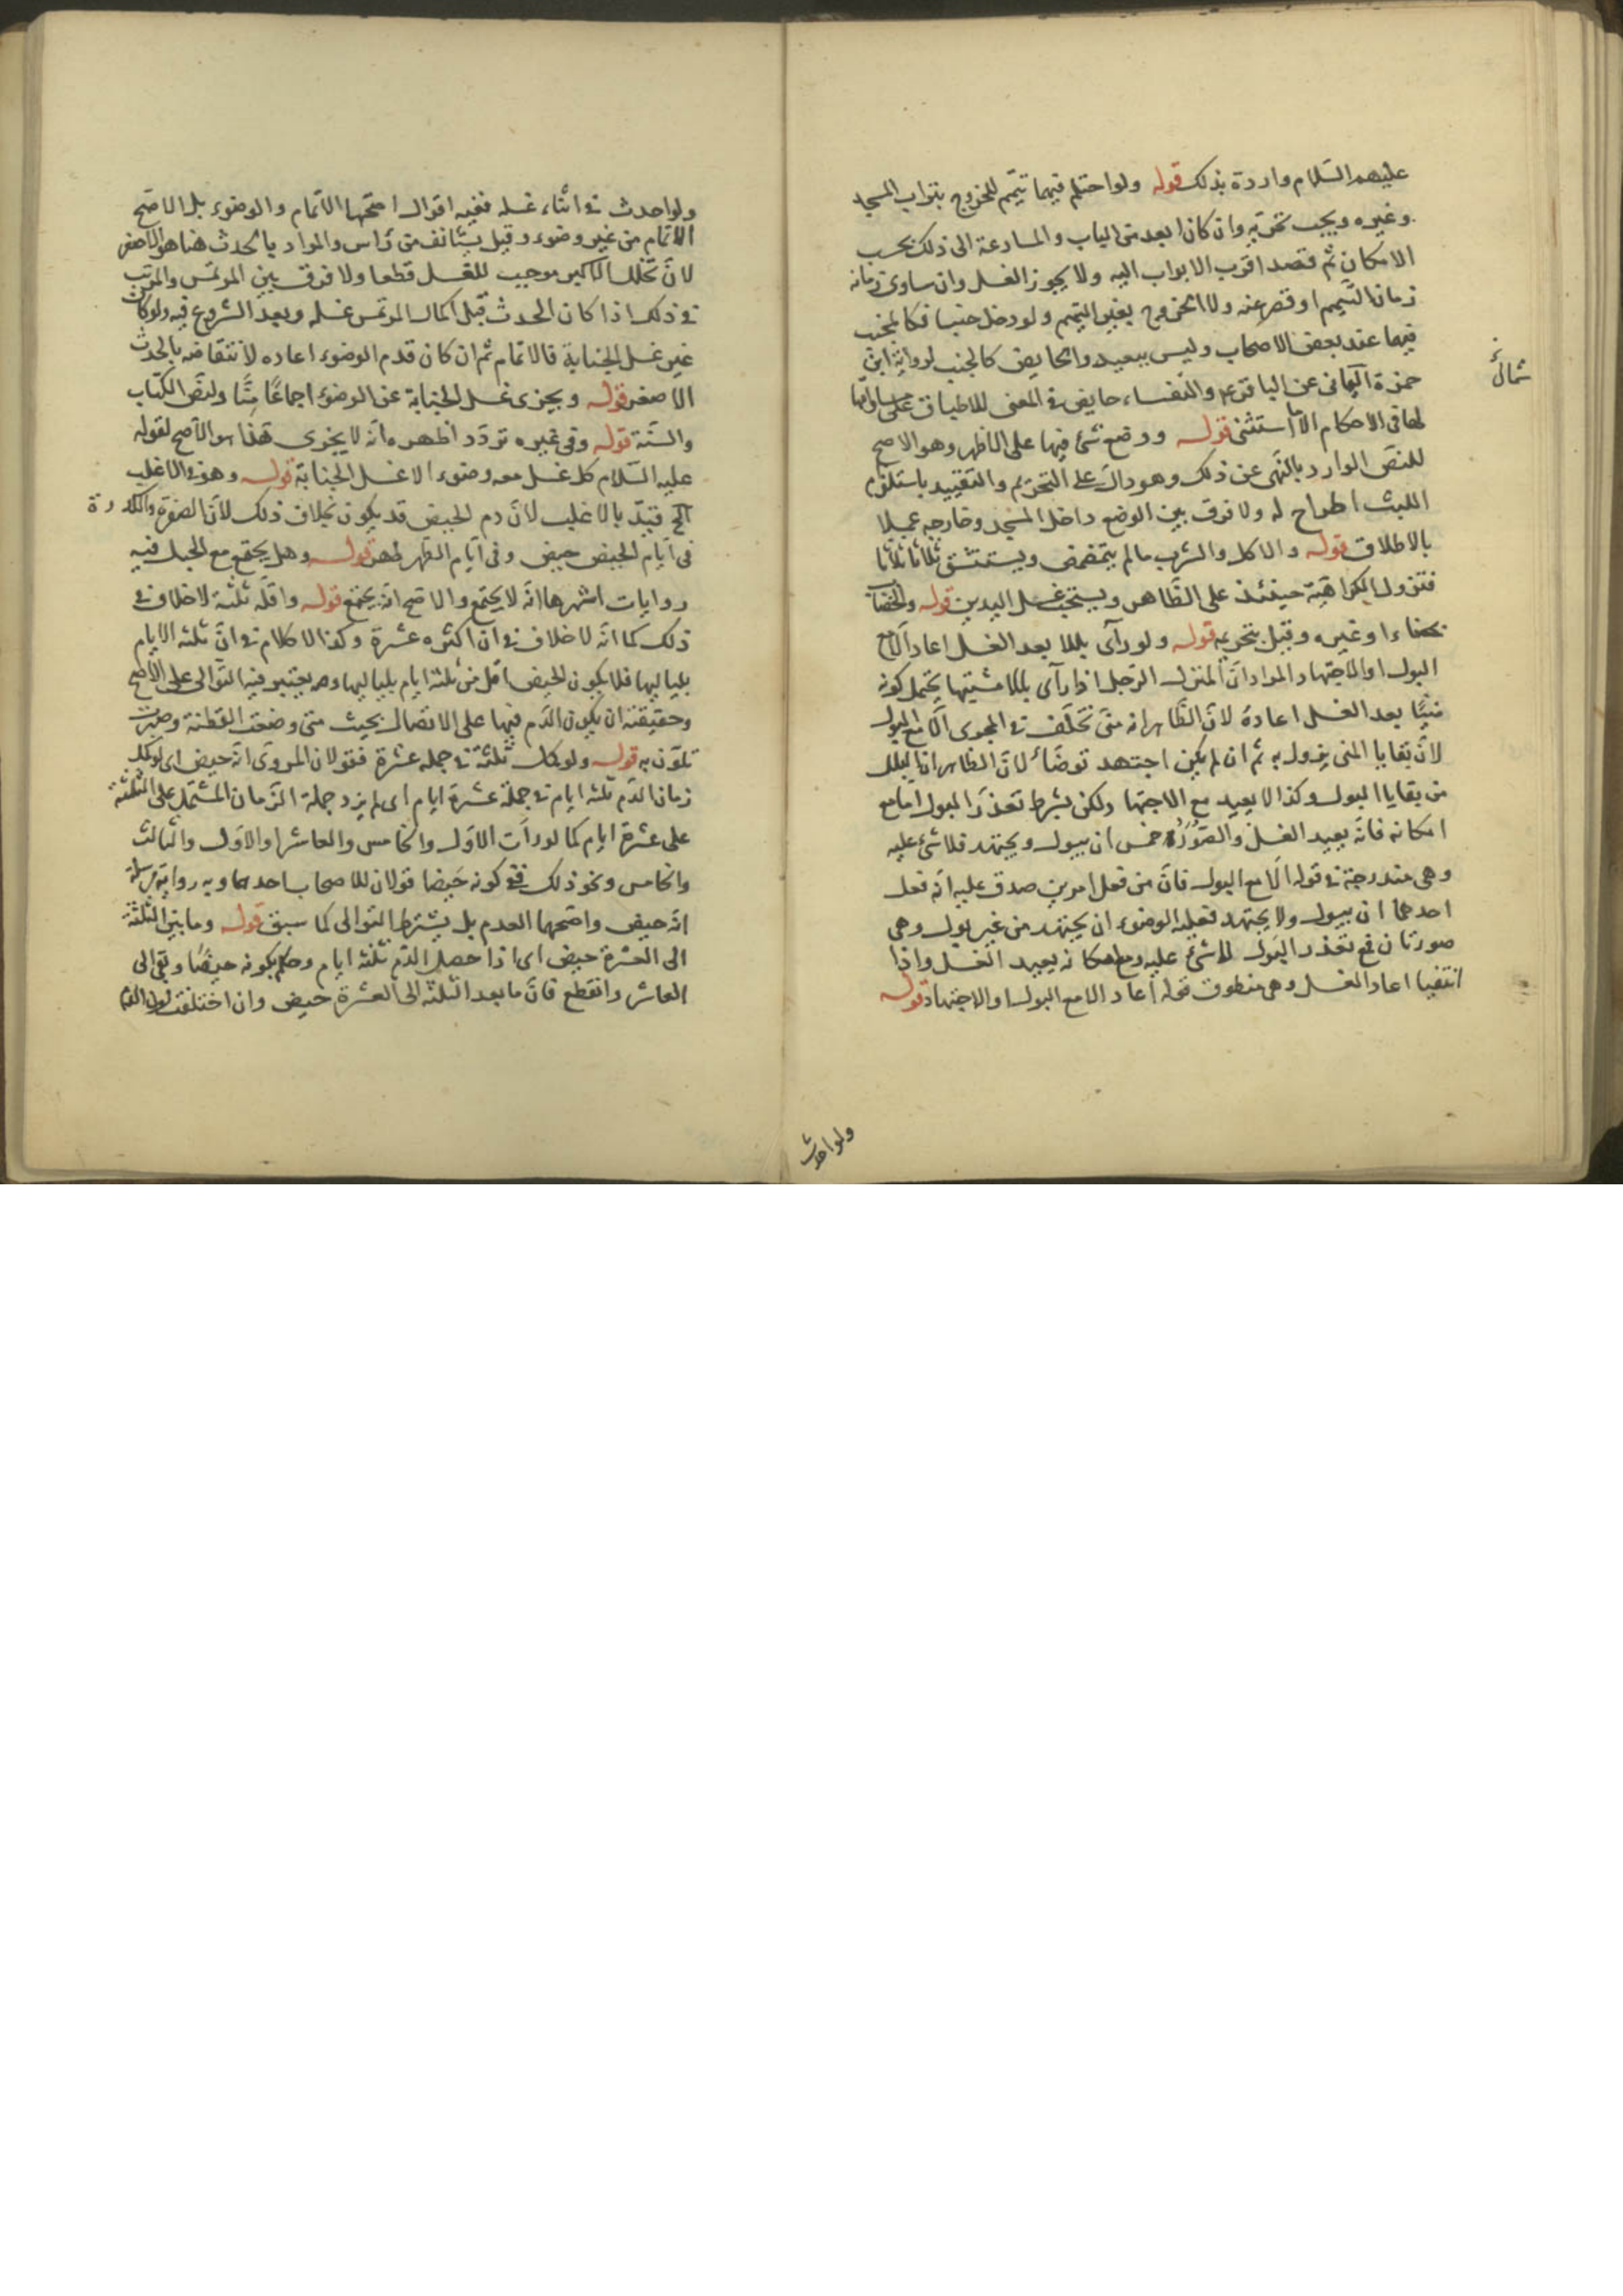 عليهم السّلام واردة بذلك قوله ولو احتلم فيهما تيمّم للخروج بتراب المسجد
وغيره ويجب تحرّيه وان كان ابعد من الباب والمسارعة الى ذلك بحسب
الامكان ثم قصد اقرب الابواب اليه ولا يجوز الغسل وان ساوى زمانه
زمان التيمم او قصر عنه ولا الخروج بغير التيمم ولو دخل جنبا فكالمجنب
فيهما عند بعض الاصحاب وليس ببعيد والحايض كالجنب لرواية ابى
حمزة الثمالى عن الباقر ع والنفساء حايض فى المعنى للاطباق على مساواتها
لها فى الاحكام الا ما استثنى قوله ووضع شئ فيها على الاظهر وهو الاصح
للنصّ الوارد بالنّهى عن ذلك وهو دالّ على التحريم والتقييد باستلزام
اللبث اطراح له ولا فرق بين الوضع داخل المسجد وخارجه عملا
بالاطلاق قوله والاكل والشرب ما لم يتمضمض ويستنشق ثلاثا ثلاثا
فتزول الكراهية حينئذ على الظّاهر ويستحب غسل اليدين قوله والخضاب
بحناء او غيره وقيل بتحريمه قوله ولو رآى بللا بعد الغسل اعاد الّا مع
البول او الاجتهاد المراد انّ المنزل الرّجل اذا رآى بللا مشتبها يحتمل كونه
منيّا بعد الغسل اعاده لانّ الظّاهر انه منىّ تخلّف فى المجرى الّا مع البول
لانّ بقايا المنى يزول به ثم ان لم يكن اجتهد توضّأ لانّ الظاهر انّ البلل
من بقايا البول وكذا لا يعيد مع الاجتها ولكن بشرط تعذّر البول اما مع
امكانه فانّه يعيد الغسل والصّور خمس ان يبول ويجتهد فلا شئ عليه
وهى مندرجة فى قوله الّا مع البول فانّ من فعل امرين صدق عليه انّه فعل
احدهما ان يبول ولا يجتهد فعليه الوضوء ان يجتهد من غير بول وهى
صورتان فمع تعذر البول لا شئ عليه ومع امكانه يعيد الغسل واذا
انتفيا اعاد الغسل وهى منطوق قوله اعاد الا مع البول او الاجتهاد قوله
ثمالى
ولو احدث
ولو احدث فى اثناء غسله ففيه اقوال اصحّها الاتمام والوضوء بل الاصّح
الاتمام من غير وضوء وقيل يستانف من رأس والمراد بالحدث هنا هو الاصغر
لانّ تخلل الاكبر موجب للغسل قطعا ولا فرق بين المرتمس والمرتب
فى ذلك اذا كان الحدث قبل اكمال المرتمس غسله وبعد الشروع فيه ولو كان
غير غسل الجنابة فالاتمام ثم ان كان قدم الوضوء اعاده لانتقاضه بالحدث
الاصغر قوله ويجزى غسل الجنابة عن الوضوء اجماعًا منّا ولنصّ الكتاب
والسّنة قوله وفى غيره تردّد اظهره انّه لا يجزى هذا هو الاصح لقوله
عليه السّلام كل غسل معه وضوء الا غسل الجنابة قوله وهو فى الاغلب
الخ قيّد بالاغلب لانّ دم الحيض قد يكون بخلاف ذلك لانّ الصفرة والكدرة
فى ايّام الحيض حيض وفى ايّام الطّهر طهر قوله وهل يجتمع مع الحبل فيه
روايات اشهرها انّه لا يجتمع والاصح انّه يجتمع قوله واقلّه ثلثة لا خلاف فى
ذلك كما انّه لا خلاف فى ان اكثره عشرة وكذا لا كلام فى انّ ثلثه الايام
بلياليها فلا يكون الحيض اقل من ثلثة ايام بلياليها وهل يعتبر فيه التوالى على الاصح
وحقيقته ان يكون الدّم فيها على الاتصال بحيث متى وضعت القطنة وصبرت
تلوّن به قوله ولو كملت ثلثة فى جمله عشرة فقولان المروىّ انّه حيض اى لو كمل
زمان الدّم ثلثه ايام فى جملة عشرة ايام اى لم يزد جملة الزّمان المشتمل على الثلثة
على عشرة ايام كما لو رأت الاوّل والخامس والعاشر او الاوّل والثالث
والخامس ونحو ذلك ففى كونه حَيضا قولان للاصحاب احدهما وبه رواية مرسلة
انّه حيض واصحهما العدم بل يشترط التوالى كما سبق قوله وما بين الثلثة
الى العشرة حيض اى اذا حصل الدّم ثلثه ايام وحكم بكونه حيضًا وبقى الى
العاشر وانقطع فانّ ما بعد الثلثه الى العشرة حيض وان اختلفت لون الدّم